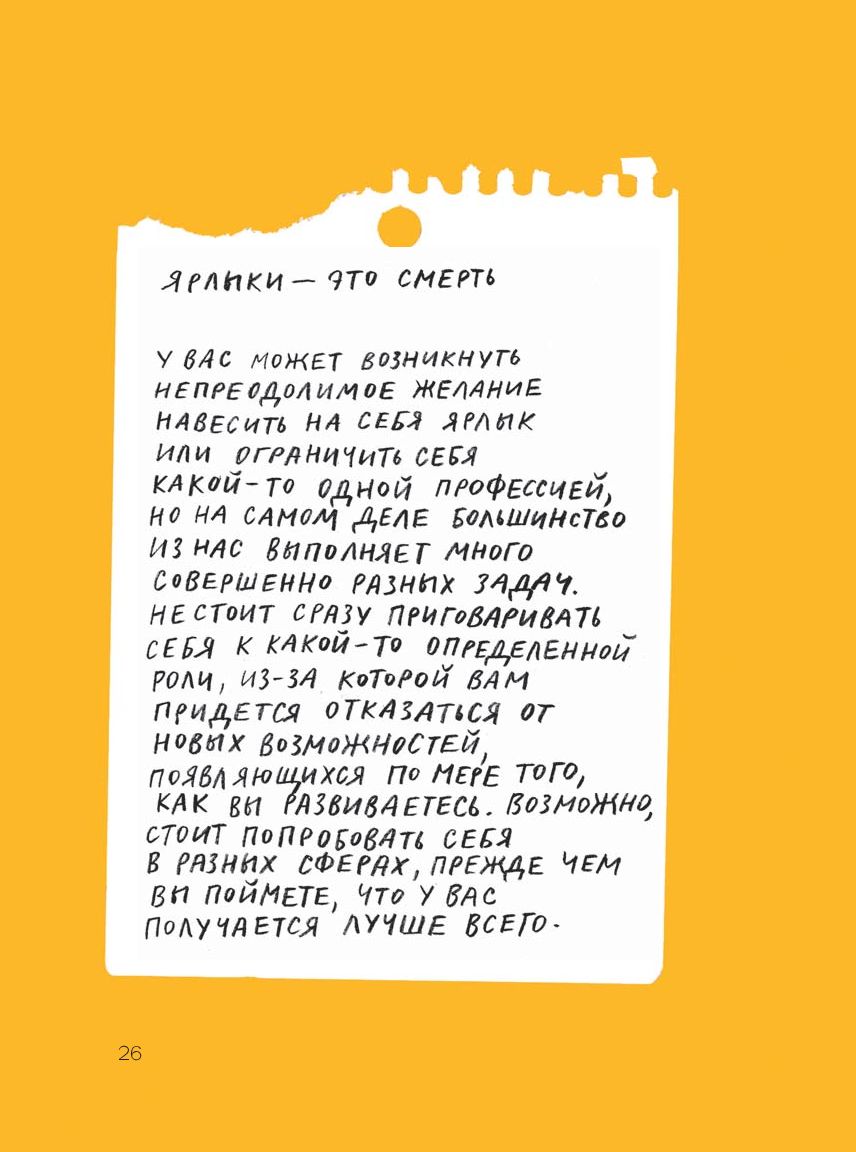 ЯРЛЫКИ — ЭТО СМЕРТЬ
У ВАС МОЖЕТ ВОЗНИКНУТЬ
НЕПРЕОДОЛИМОЕ ЖЕЛАНИЕ
НАВЕСИТЬ НА СЕБЯ ЯРЛЫК
ИЛИ ОГРАНИЧИТЬ СЕБЯ
КАКОЙ-ТО ОДНОЙ ПРОФЕССИЕЙ,
НО НА САМОМ ДЕЛЕ БОЛЬШИНСТВО
ИЗ НАС ВЫПОЛНЯЕТ МНОГО
СОВЕРШЕННО РАЗНЫХ ЗАДАЧ.
НЕ СТОИТ СРАЗУ ПРИГОВАРИВАТЬ
СЕБЯ К КАКОЙ-ТО ОПРЕДЕЛЕННОЙ
РОЛИ, ИЗ-ЗА КОТОРОЙ ВАМ
ПРИДЕТСЯ ОТКАЗАТЬСЯ ОТ
НОВЫХ ВОЗМОЖНОСТЕЙ,
ПОЯВЛЯЮЩИХСЯ ПО МЕРЕ ТОГО,
КАК ВЫ РАЗВИВАЕТЕСЬ. ВОЗМОЖНО,
СТОИТ ПОПРОБОВАТЬ СЕБЯ
В РАЗНЫХ СФЕРАХ, ПРЕЖДЕ ЧЕМ
ВЫ ПОЙМЕТЕ, ЧТО У ВАС
ПОЛУЧАЕТСЯ ЛУЧШЕ ВСЕГО.
26